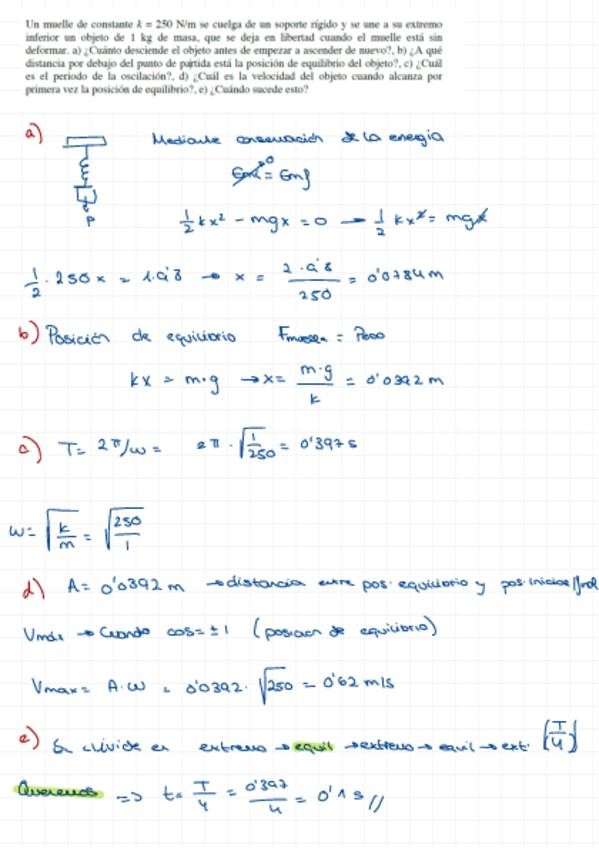 Un muelle de constante k = 250 N/m se cuelga de un soporte rígido y se une a su extremo
inferior un objeto de 1 kg de masa, que se deja en libertad cuando el muelle está sin
deformar. a) ¿Cuánto desciende el objeto antes de empezar a ascender de nuevo?, b) ¿A qué
distancia por debajo del punto de partida está la posición de equilibrio del objeto?, c) ¿Cuál
es el periodo de la oscilación?, d) ¿Cuál es la velocidad del objeto cuando alcanza por
primera vez la posición de equilibrio?, e) ¿Cuándo sucede esto?
a) Mediante conservación de la energía
= Emf
P
1/2 kx² - mgx = 0 → 1/2 kx² = mgx
1/2 · 250x = 1·9'8 → x = 2·9'8/250 = 0'0784 m
b) Posición de equilibrio Fmuelle = Peso
kx = m·g → x = m·g/k = 0'0392 m
c) T = 2π/ω = 2π · √(1/250) = 0'397 s
ω = √(k/m) = √(250/1)
d) A = 0'0392 m → distancia entre pos. equilibrio y pos. inicial/final
Vmáx → Cuando cos = ±1 (posición de equilibrio)
Vmax = A·ω = 0'0392 · √250 = 0'62 m/s
e) Se divide en extremo → equil → extremo → equil → ext. (T/4)
Queremos => t = T/4 = 0'397/4 = 0'1 s //